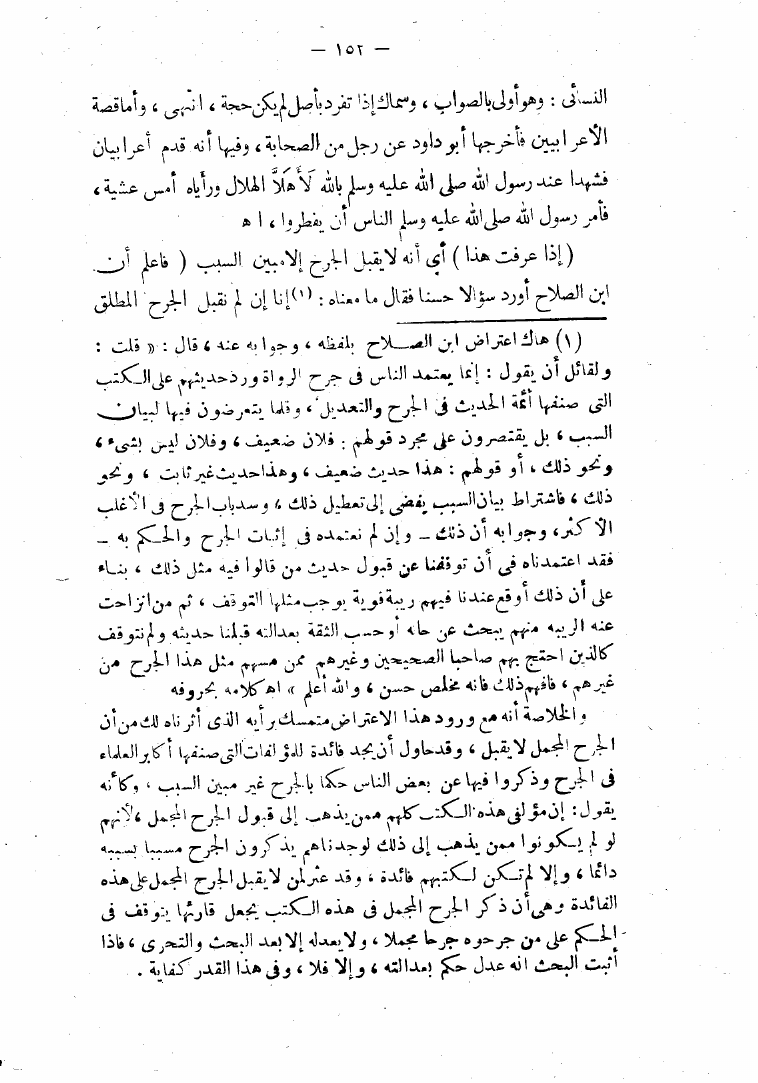 — ١٥٢ —
النسائى : وهو أولى بالصواب ، وسماك إذا تفرد بأصل لم يكن حجة ، انتهى ، وأما قصة
الأعرابيين فأخرجها أبو داود عن رجل من الصحابة ، وفيها أنه قدم أعرابيان
فشهدا عند رسول الله صلى الله عليه وسلم بالله لَأَهَلاَّ الهلال ورأياه أمس عشية ،
فأمر رسول الله صلى الله عليه وسلم الناس أن يفطروا ، اه
( إذا عرفت هذا ) أى أنه لا يقبل الجرح إلا مبين السبب ( فاعلم أن
ابن الصلاح أورد سؤالا حسنا فقال ما معناه : (١) إنا إن لم نقبل الجرح المطلق
(١) هاك اعتراض ابن الصلاح بلفظه ، وجوابه عنه ، قال : « قلت :
ولقائل أن يقول : إنما يعتمد الناس فى جرح الرواة ورد حديثهم على الكتب
التى صنفها أئمة الحديث فى الجرح والتعديل ، وقلما يتعرضون فيها لبيان
السبب ، بل يقتصرون على مجرد قولهم : فلان ضعيف ، وفلان ليس بشىء ،
ونحو ذلك ، أو قولهم : هذا حديث ضعيف ، وهذا حديث غير ثابت ، ونحو
ذلك ، فاشتراط بيان السبب يفضى إلى تعطيل ذلك ، وسد باب الجرح فى الأغلب
الأكثر ، وجوابه أن ذلك – وإن لم نعتمده فى إثبات الجرح والحكم به –
فقد اعتمدناه فى أن توقفنا عن قبول حديث من قالوا فيه مثل ذلك ، بناء
على أن ذلك أوقع عندنا فيهم ريبة قوية يوجب مثلها التوقف ، ثم من انزاحت
عنه الريبة منهم يبحث عن حاله أوجب الثقة بعدالته قبلنا حديثه ولم نتوقف
كالذين احتج بهم صاحبا الصحيحين وغيرهم ممن مسهم مثل هذا الجرح من
غيرهم ، فافهم ذلك فانه مخلص حسن ، والله أعلم » اه كلامه بحروفه
والخلاصة أنه مع ورود هذا الاعتراض متمسك برأيه الذى أثرناه لك من أن
الجرح المجمل لا يقبل ، وقد حاول أن يجد فائدة للمؤلفات التى صنفها أكابر العلماء
فى الجرح وذكروا فيها عن بعض الناس حكما بالجرح غير مبين السبب ، وكأنه
يقول : إن مؤلفى هذه الكتب كلهم ممن يذهب إلى قبول الجرح المجمل ، لأنهم
لو لم يكونوا ممن يذهب إلى ذلك لوجدناهم يذكرون الجرح مسببا بسببه
دائما ، وإلا لم تكن لكتبهم فائدة ، وقد عثر لمن لا يقبل الجرح المجمل على هذه
الفائدة وهى أن ذكر الجرح المجمل فى هذه الكتب يجعل قارئها يتوقف فى
الحكم على من جرحوه جرحا مجملا ، ولا يعدله إلا بعد البحث والتحرى ، فاذا
أثبت البحث انه عدل حكم بعدالته ، وإلا فلا ، وفى هذا القدر كفاية .